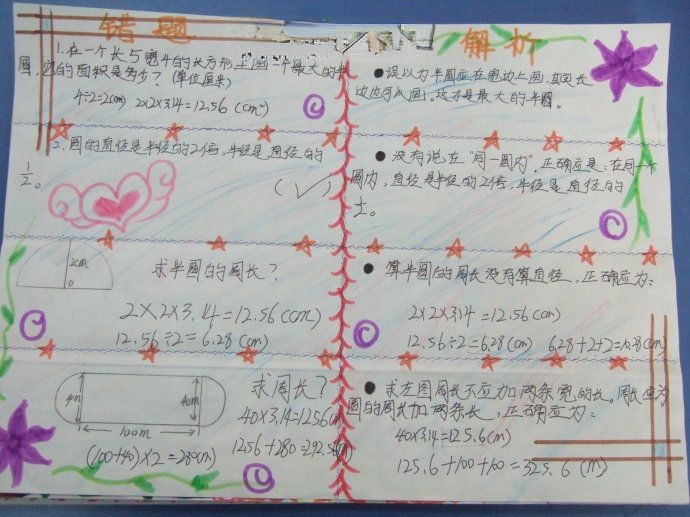 错题
1.在一个长5宽4的长方形上画一个最大的半
圆,它的面积是多少?(单位厘米)
4÷2=2(cm) 2×2×3.14=12.56(cm)
2.圆的直径是半径的2倍,半径是直径的
1/2。
(√)
2cm
0
求半圆的周长?
2×2×3.14=12.56(cm)
12.56÷2=6.28(cm)
40m
40m
100m
求周长?
40×3.14=125.6(m)
(100+40)×2=280(m)
125.6+280=
解析
●误以为半圆应在宽边上画,其实长
边也可以画。这才是最大的半圆。
●没有说在"同一圆内",正确应是:在同一个
圆内,直径是半径的2倍,半径是直径的
●算半圆的周长没有算直径,正确应为:
2×2×3.14=12.56(cm)
12.56÷2=6.28(cm) 6.28+2+2=10.28(cm)
●求左图周长不应加两条宽的长。周长应为
圆的周长加两条长,正确应为:
40×3.14=125.6(m)
125.6+100+100=325.6(m)